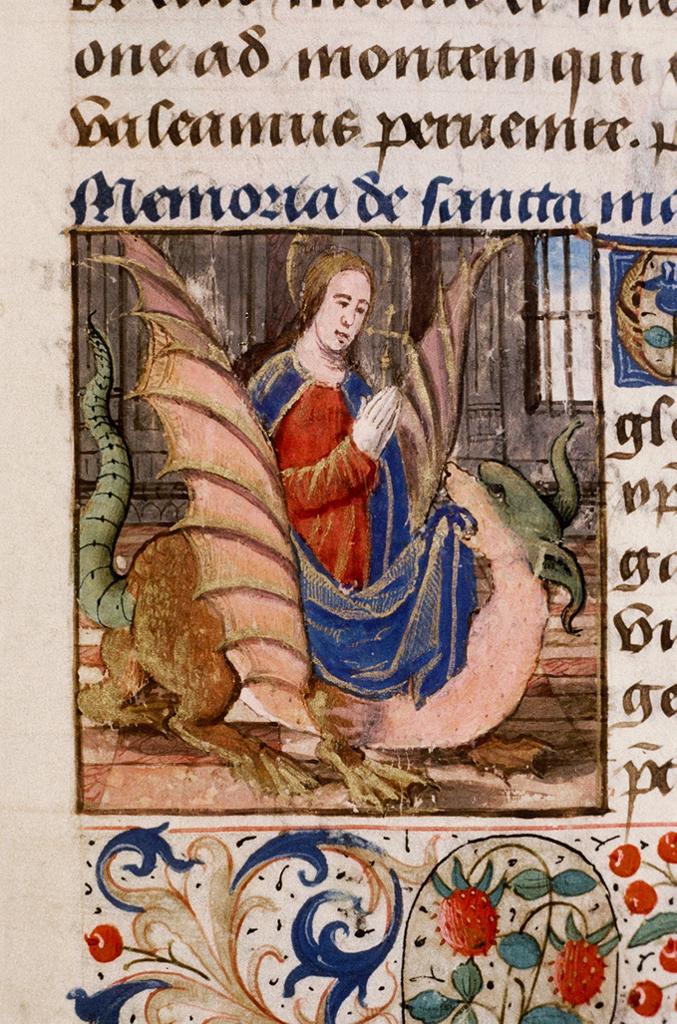 one ad montem qui
valeamus peruenire. p
Memoria de sancta ma
glo
vp
ga
vi
ge